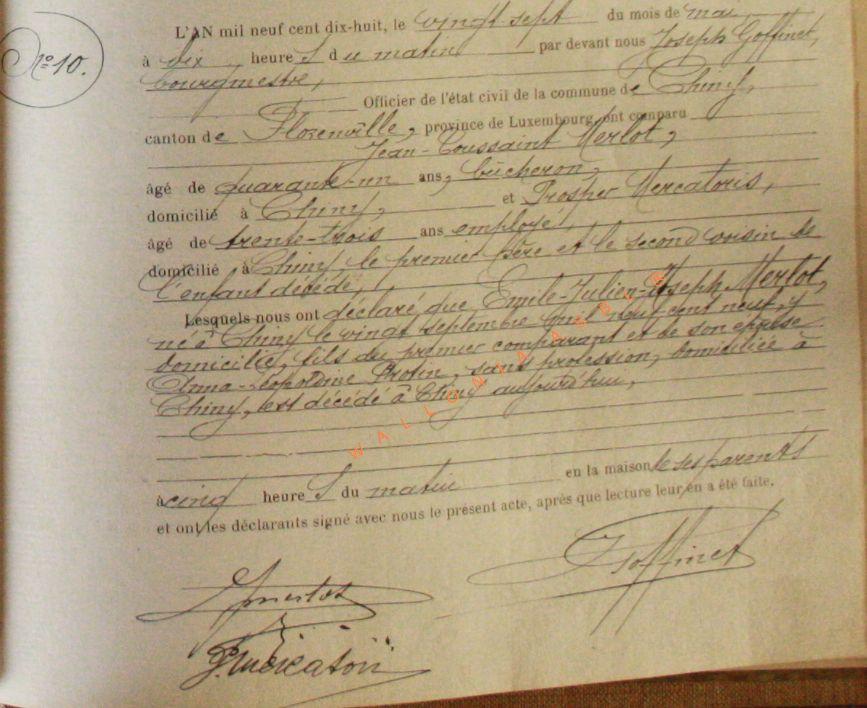 N° 10.
L'AN mil neuf cent dix-huit, le vingt sept du mois de mai
à dix heure s du matin par devant nous Joseph Goffinet,
bourgmestre,
Officier de l'état civil de la commune de Chiny,
canton de Florenville, province de Luxembourg, ont comparu
Jean-Toussaint Merlot,
âgé de quarante-un ans, bûcheron,
domicilié à Chiny, et Prosper Mercatoris,
âgé de trente-trois ans employé,
domicilié à Chiny le premier père et le second voisin de
l'enfant décédé,
Lesquels nous ont déclaré que Emile-Julien-Joseph Merlot,
né à Chiny le vingt septembre mil neuf cent neuf, y
domicilié, fils du premier comparant et de son épouse
Anna-Léopoldine Protin, sans profession, domiciliée à
Chiny, est décédé à Chiny aujourd'hui,
à cinq heure s du matin en la maison de ses parents
et ont les déclarants signé avec nous le présent acte, après que lecture leur en a été faite.
JGoffinet
Jmerlot
P. Mercatoris